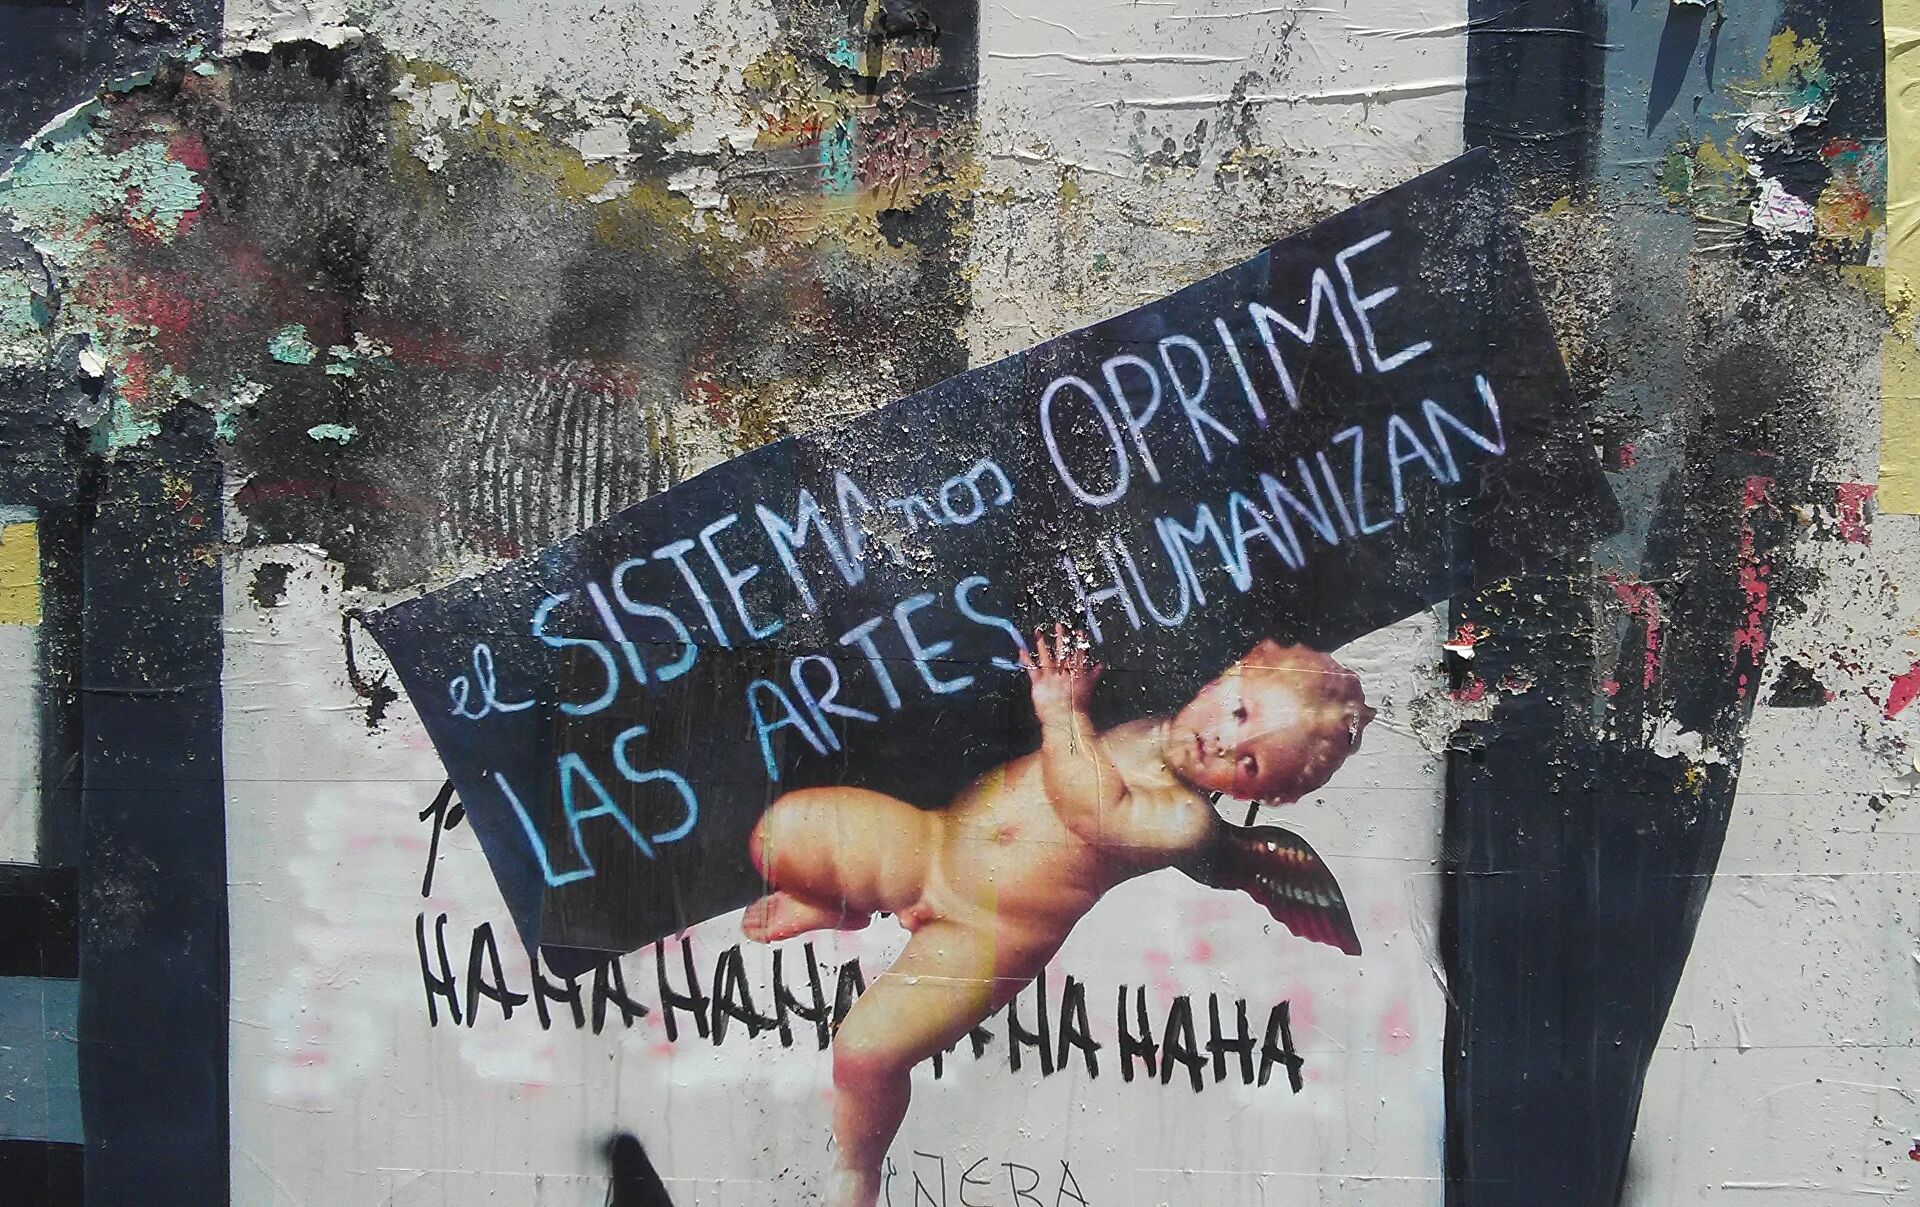 el SISTEMA nos OPRIME
LAS ARTES HUMANIZAN
HAHAHAHAHA HAHAHA